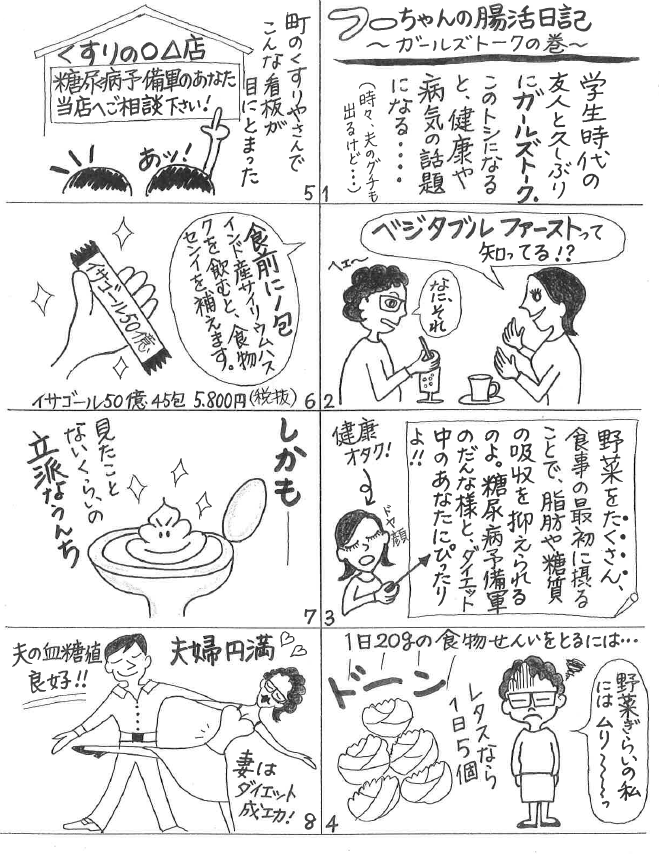 フーちゃんの腸活日記
～ガールズトークの巻～
学生時代の
友人と久しぶり
にガールズトーク。
このトシになる
と、健康や
病気の話題
になる・・・・
(時々、夫のグチも
出るけど・・・)
1
ベジタブル ファーストって
知ってる!?
ヘェ～
なに、それ
2
野菜をたくさん、
食事の最初に摂る
ことで、脂肪や糖質
の吸収を抑えられる
のよ。糖尿病予備軍
のだんな様と、ダイエット
中のあなたにぴったり
よ!!
健康
オタク!
ドヤ顔
3
1日20gの食物せんいをとるには…
ドーン
レタスなら
1日5個
野菜ぎらいの私
には ムリ～～～～っ
4
町のくすりやさんで
こんな看板が
目にとまった
くすりの〇△店
糖尿病予備軍のあなた
当店へご相談下さい!
あッ!
5
食前に1包
インド産サイリウムハス
クを飲むと、食物
センイを、補えます。
イサゴール50億
イサゴール50億・45包 5.800円(税抜)
6
しかも
見たこと
ないくらいの
立派なうんち
7
夫の血糖値
良好!!
夫婦円満
妻は
ダイエット
成功!
8